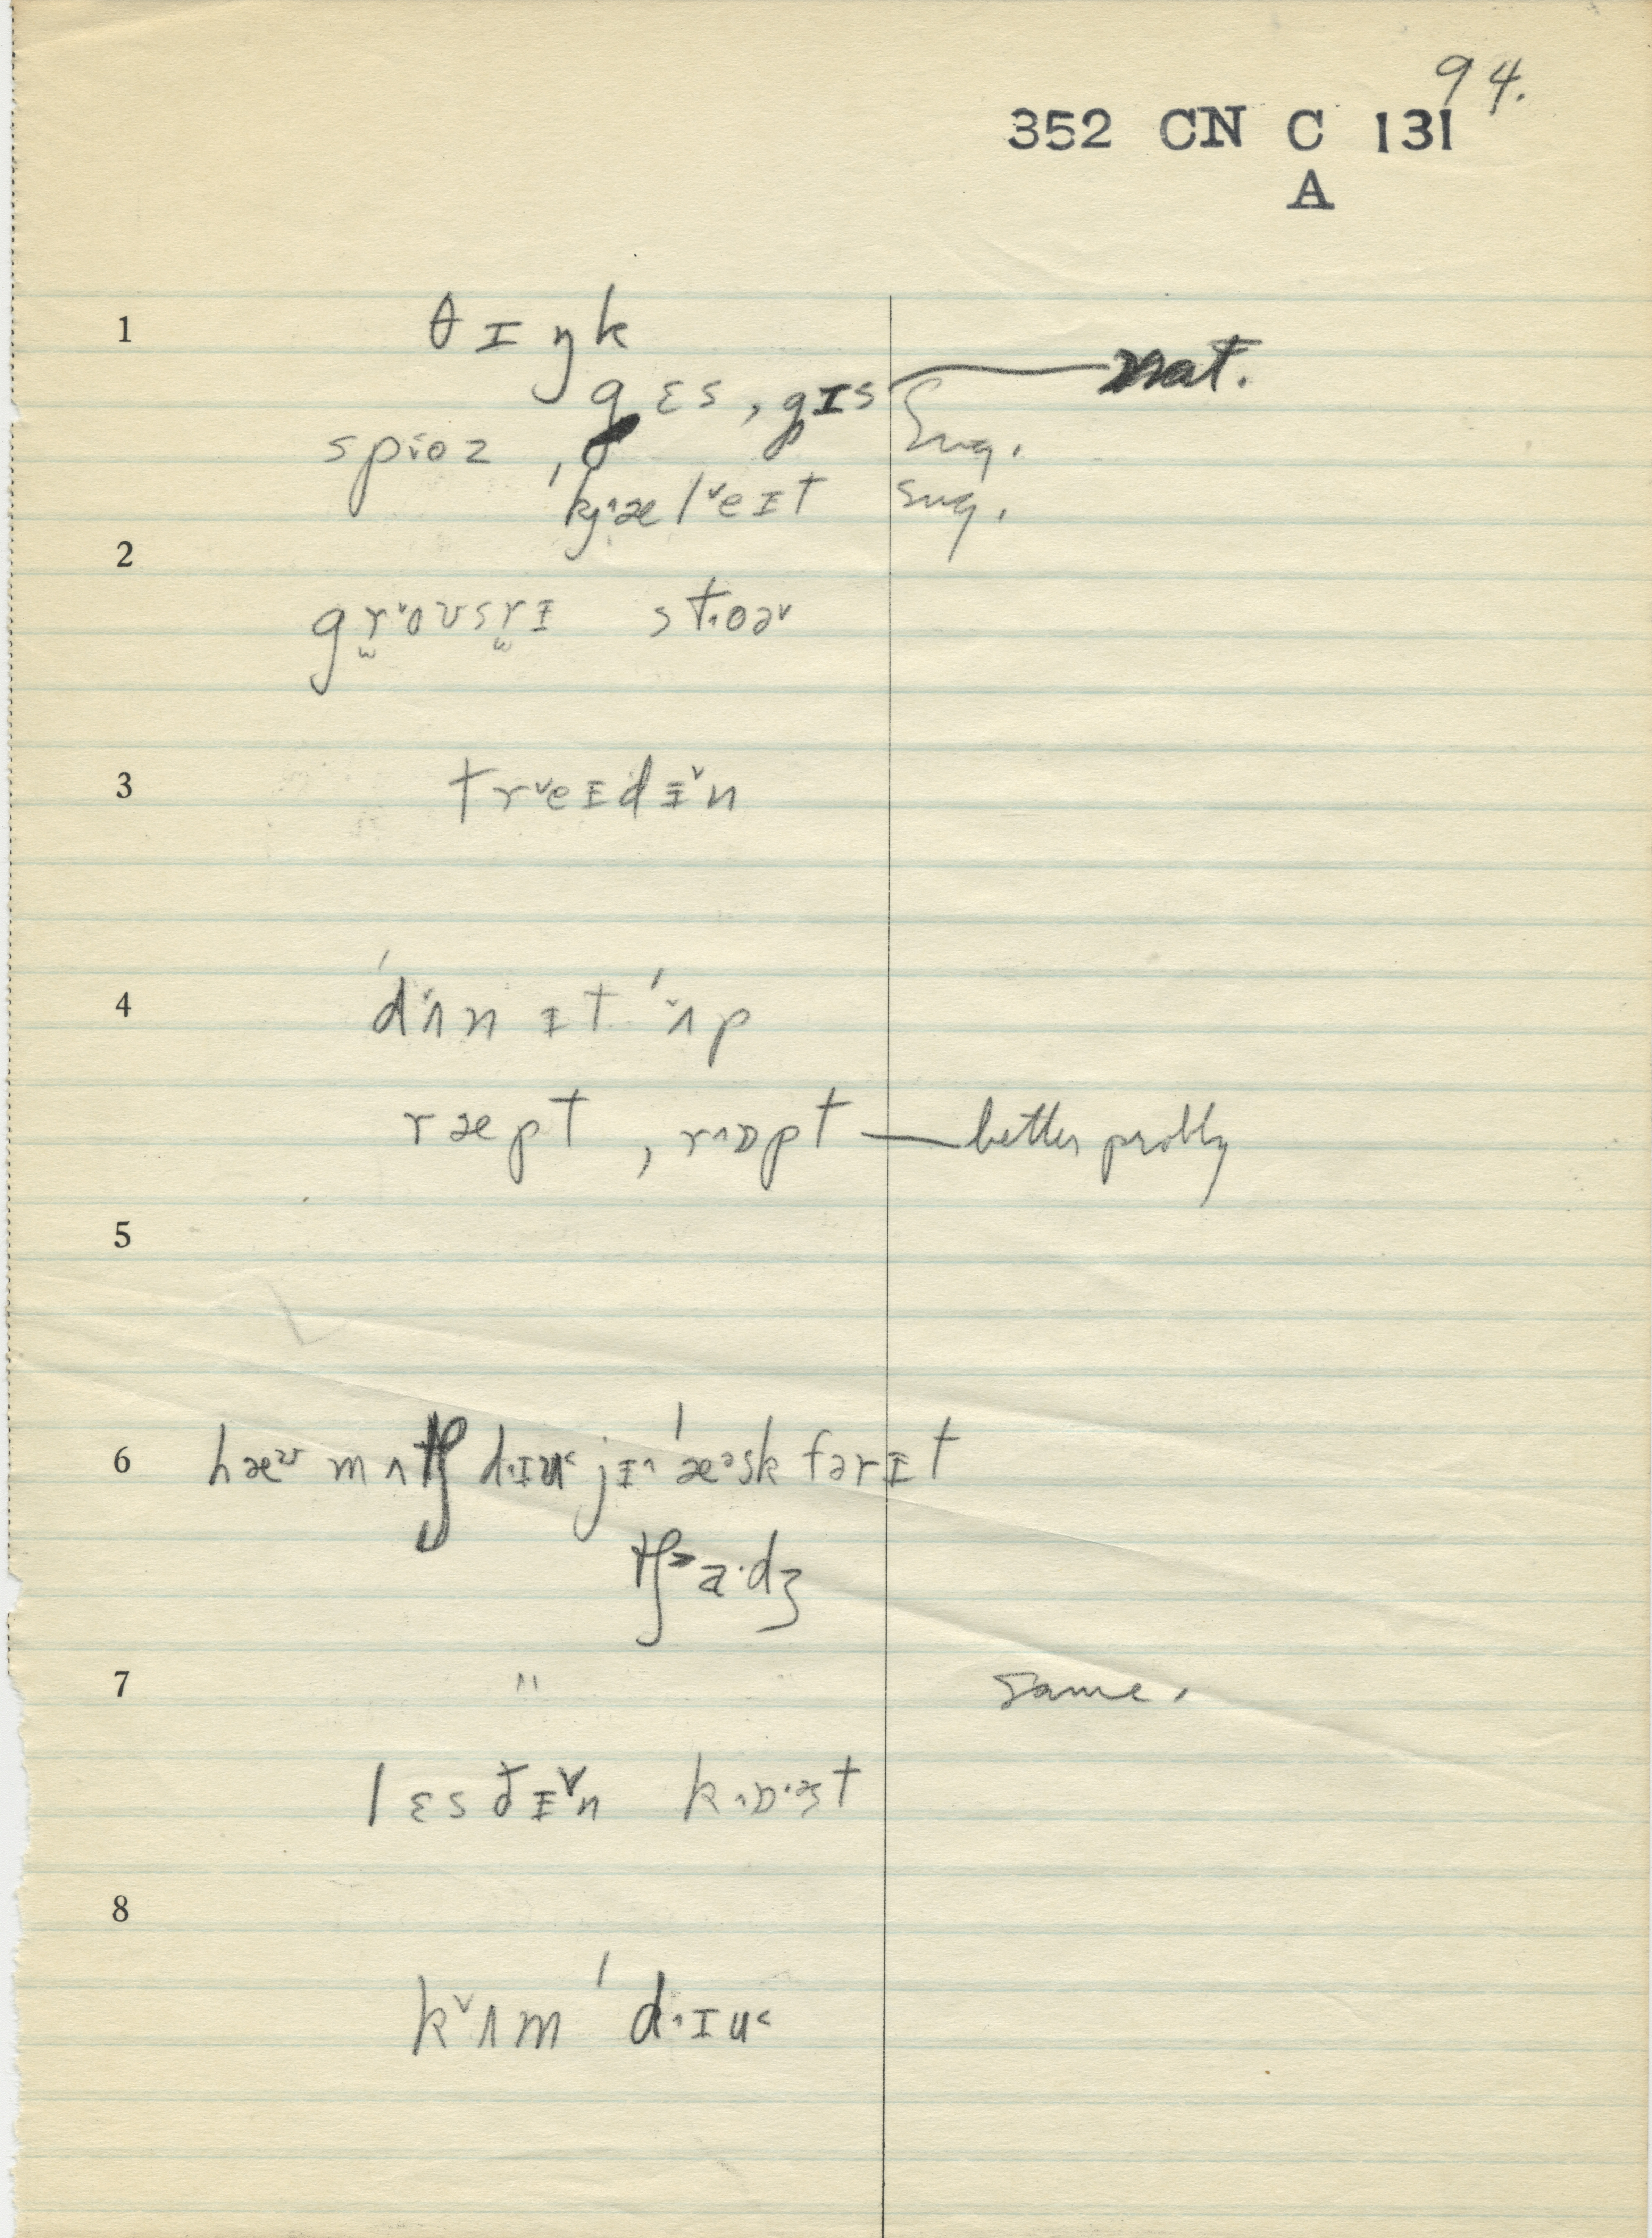 94.
352 CN C 131
A
1 θ ɪ ŋ k
g ɛ s , g ɪ s nat.
s p i o z , Sug.
ˈkj˄æl˅eɪt sug.
2
gr̬˅oʊsrɪ st˄oə˅
3 tr˅eɪdɪ˅n
4 ˈd˅ʌn ɪt ˈ˅ʌp
ræpt , r˄ɒpt — better probly
5
6 hæʊ mʌtʃ d˄ɪu˂ jɪ˄ ˈæᵊsk fərɪt
tʃ˃a·dʒ
7 " same.
lɛst̬ɪ˅n k˄ɒ·ᵊst
8
k˅ʌm ˈd˄ɪu˂